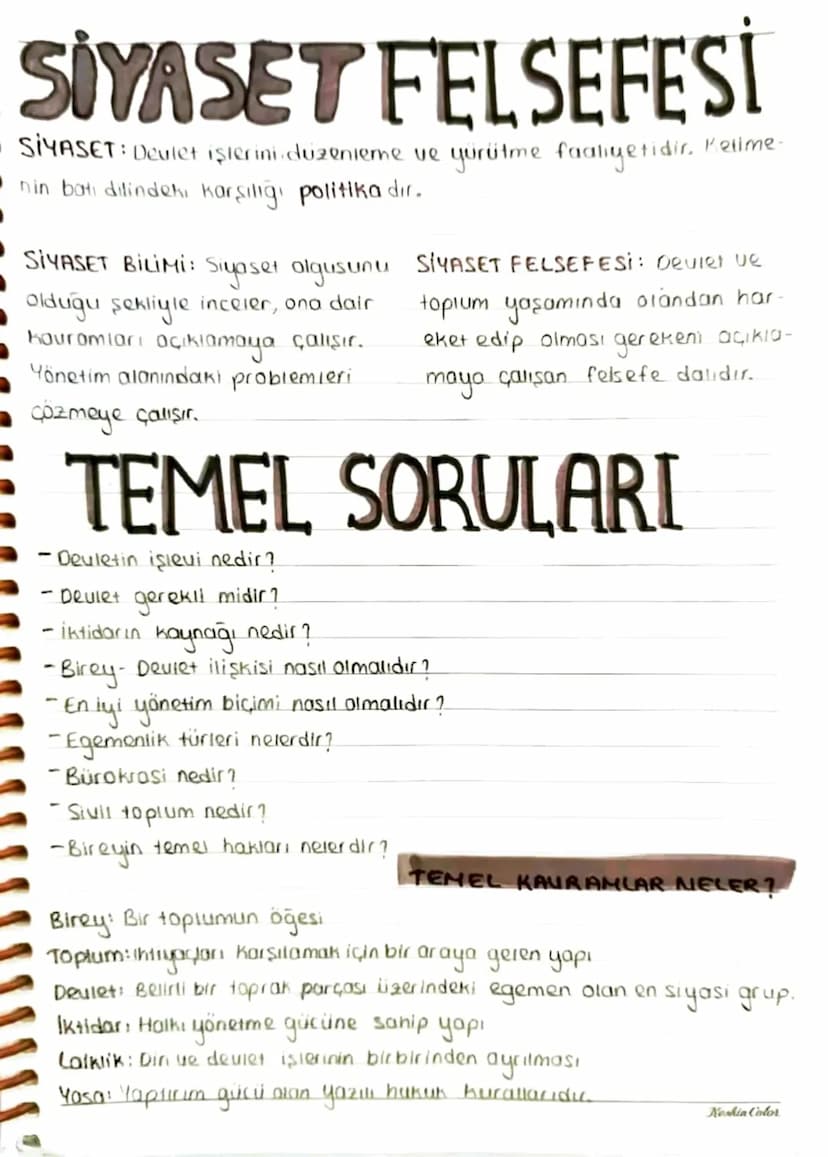 SİYASET FELSEFESİ
SİYASET: Devlet işlerini düzenleme ve yürütme faaliyetidir. Kelime-
nin batı dilindeki karşılığı politikadır.
SİYASET BİLİMİ: Siyaset olgusunu
olduğu şekliyle inceler, ona dair
kavramları açıklamaya çalışır.
Yönetim alanındaki problemleri
çözmeye çalışır.
SİYASET FELSEFESİ: Devlet ve
toplum yaşamında olandan har-
eket edip olması gerekeni açıkla-
maya çalışan felsefe dalıdır.
TEMEL SORULARI
- Devletin işlevi nedir?
- Devlet gerekli midir?
- İktidarın kaynağı nedir?
- Birey- Devlet ilişkisi nasıl olmalıdır?
- En iyi yönetim biçimi nasıl olmalıdır?
- Egemenlik türleri nelerdir?
- Bürokrasi nedir?
- Sivil toplum nedir?
- Bireyin temel hakları nelerdir?
TEMEL KAVRAMLAR NELER?
Birey: Bir toplumun öğesi
Toplum: ihtiyaçları karşılamak için bir araya gelen yapı
Devlet: Belirli bir toprak parçası üzerindeki egemen olan en siyasi grup.
İktidar: Halkı yönetme gücüne sahip yapı
Laiklik: Din ve devlet işlerinin birbirinden ayrılması
Yasa: Yaptırım gücü olan yazılı hukuk kurallarıdır.
Keskin Color